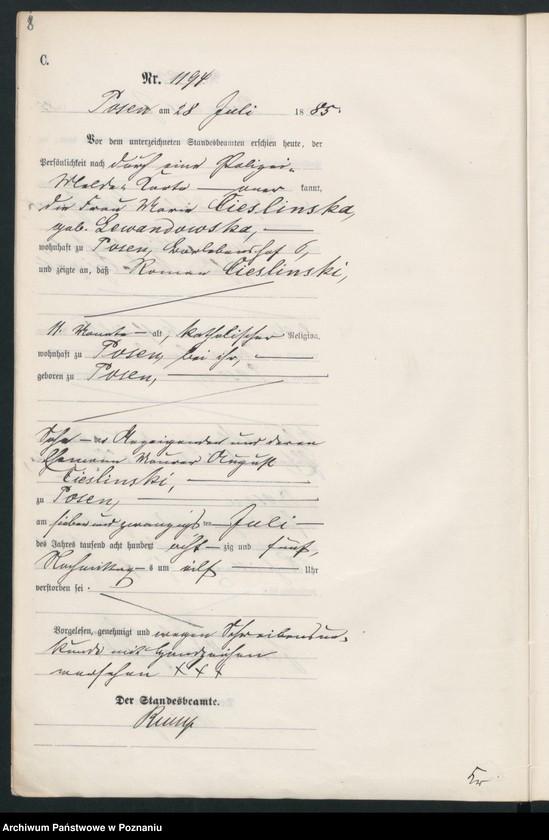 8
C.
Nr. 1194
Posen am 28 Juli 1885.
Vor dem unterzeichneten Standesbeamten erschien heute, der
Persönlichkeit nach durch eine Polizei-
Melde-Karte — aner kannt,
die Frau Marie Cieslinska,
geb. Lewandowska, —
wohnhaft zu Posen, 6,
und zeigte an, daß Roman Cieslinski,
11 Monate — alt, katholischer Religion,
wohnhaft zu Posen, bei ihr, —
geboren zu Posen, —
Sohn — der Anzeigenden und deren
Ehemann Maurer August
Cieślinski, —
zu Posen, —
am sieben und zwanzigsten Juli —
des Jahres tausend acht hundert acht — zig und fünf,
Nachmittag — s um elf — Uhr
verstorben sei.
Vorgelesen, genehmigt und wegen Schreibensun-
kunde mit Handzeichen
versehen + + +
Der Standesbeamte.
Kr
Archiwum Państwowe w Poznaniu